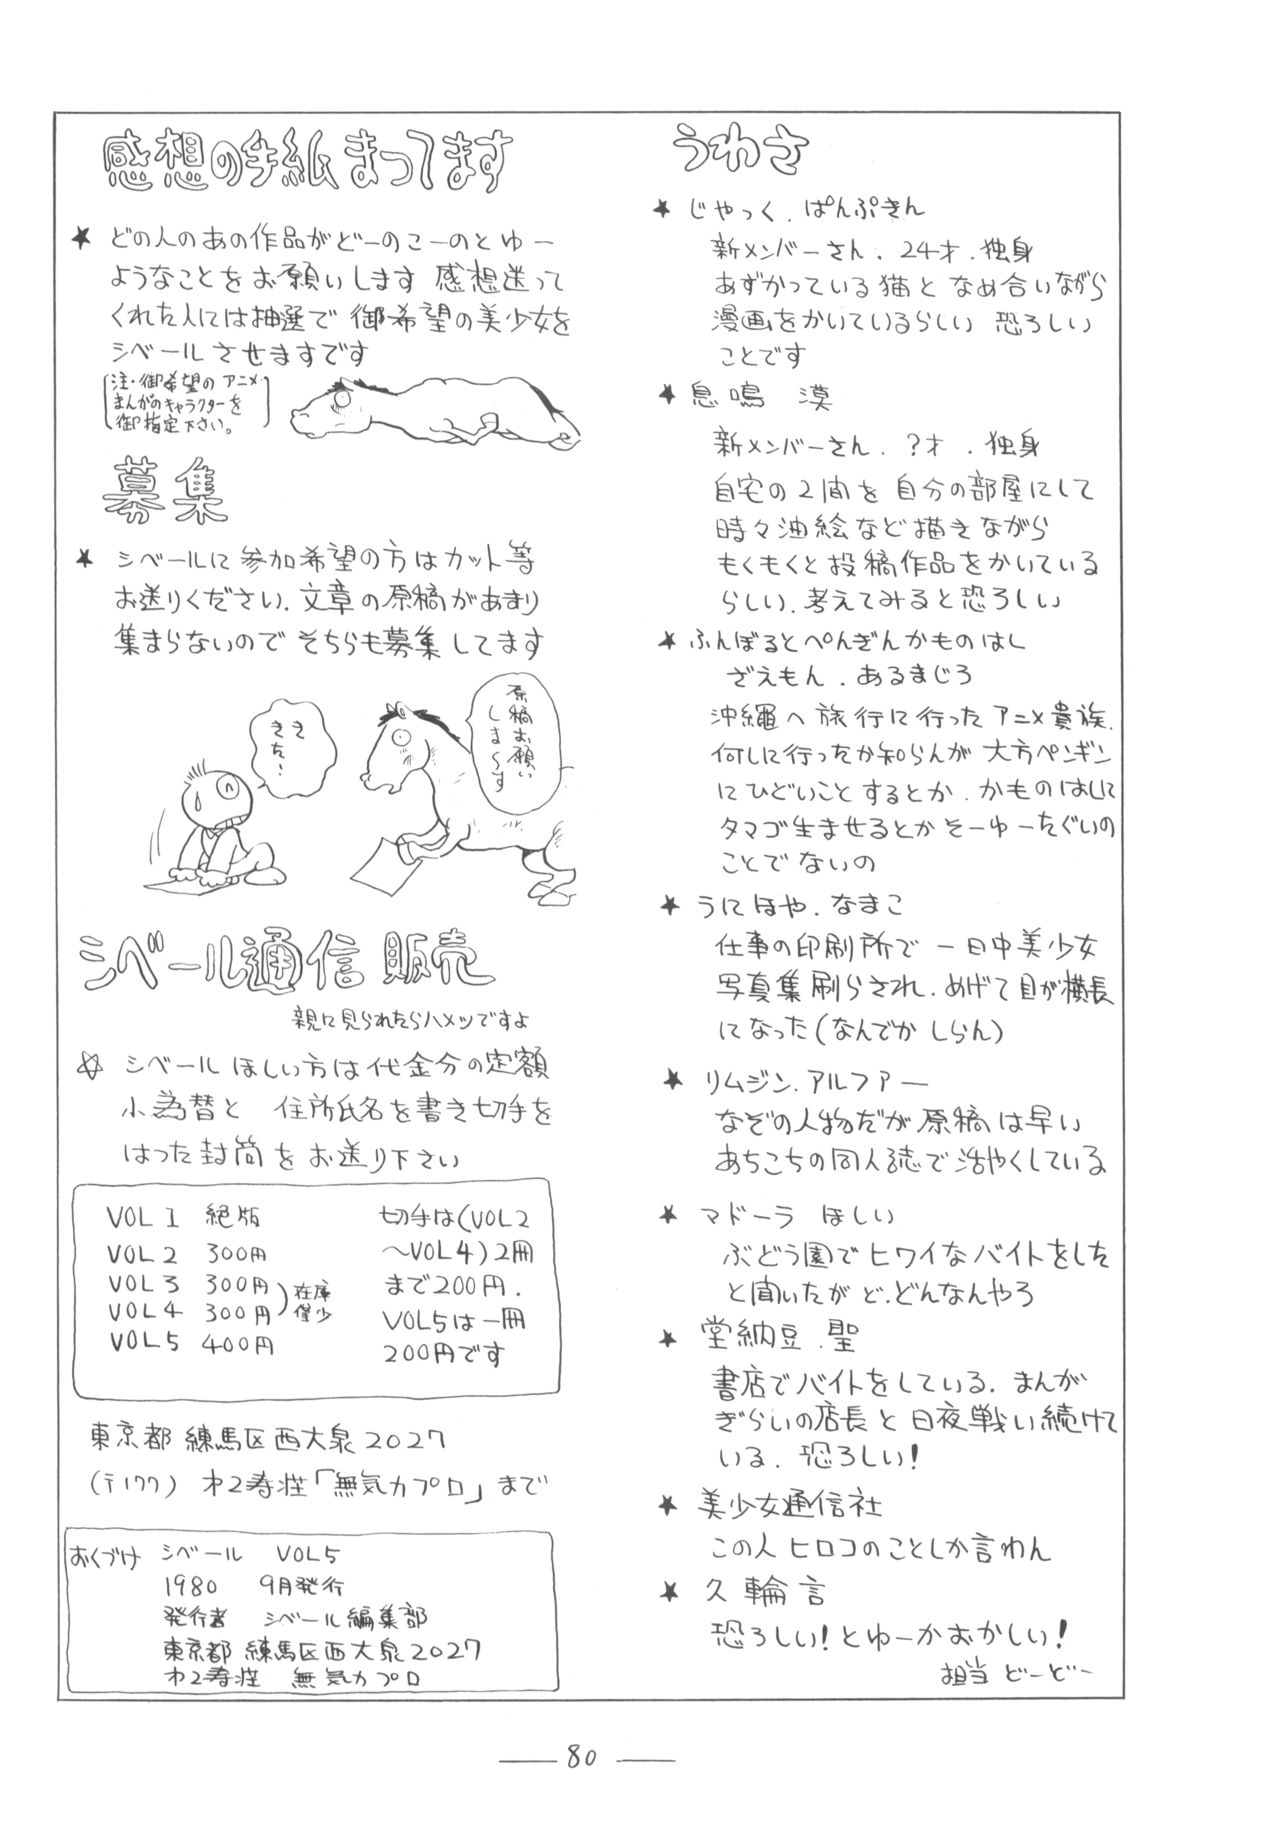 感想の手紙まってます
★ どの人のあの作品がどーのこーのとゆー
ようなことをお願いします 感想送って
くれた人には抽選で 御希望の美少女を
シベールさせますです
注・御希望のアニメ・
まんがのキャラクターを
御指定下さい。
募集
★ シベールに参加希望の方はカット等
お送りください.文章の原稿があまり
集まらないので そちらも募集してます
きた〜
原稿お願い
しま〜す
シベール通信販売
親に見られたらハメツですよ
☆ シベールほしい方は代金分の定額
小為替と 住所氏名を書き切手を
はった封筒をお送り下さい
VOL 1 絶版
VOL 2 300円
VOL 3 300円
VOL 4 300円
在庫
僅少
VOL 5 400円
切手は(VOL2
〜VOL4)2冊
まで200円.
VOL5は一冊
200円です
東京都練馬区西大泉2027
(〒177) 才2寿荘「無気力プロ」まで
おくづけ シベール VOL5
1980 9月発行
発行者 シベール編集部
東京都練馬区西大泉2027
才2寿荘 無気力プロ
うわさ
★ じゃっく.ぱんぷきん
新メンバーさん.24才.独身
あずかっている猫と なめ合いながら
漫画をかいているらしい 恐ろしい
ことです
★ 息鳴 漠
新メンバーさん.?才.独身
自宅の2間を自分の部屋にして
時々油絵など描きながら
もくもくと投稿作品をかいている
らしい.考えてみると恐ろしい
★ ふんぼるとぺんぎんかものはし
ざえもん.あるまじろ
沖縄へ旅行に行ったアニメ貴族.
何しに行ったか知らんが 大方ペンギン
にひどいことするとか.かものはしに
タマゴ生ませるとかそーゆーたぐいの
ことでないの
★ うにほや.なまこ
仕事の印刷所で一日中美少女
写真集刷らされ.めげて目が横長
になった(なんでかしらん)
★ リムジン.アルファー
なぞの人物だが原稿は早い
あちこちの同人誌で活やくしている
★ マドーラ ほしい
ぶどう園でヒワイなバイトをした
と聞いたがど.どんなんやろ
★ 堂納豆.聖
書店でバイトをしている.まんが
ぎらいの店長と日夜戦い続けて
いる.恐ろしい!
★ 美少女通信社
この人ヒロコのことしか言わん
★ 久輪言
恐ろしい!とゆーかおかしい!
担当 どーどー
80